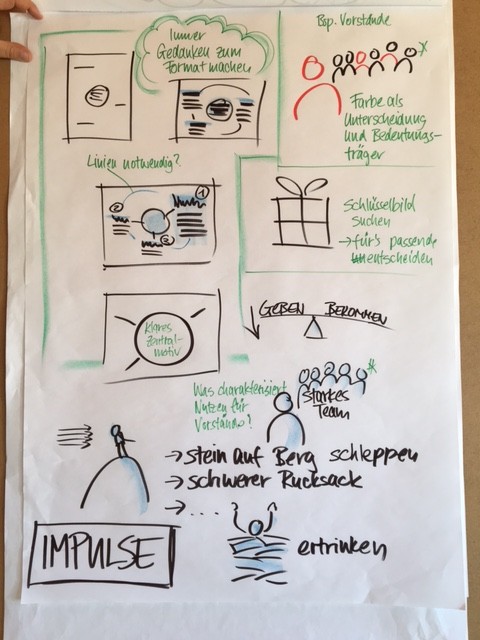 Immer
Gedanken zum
Format machen
Bsp. Vorstände
Farbe als
Unterscheidung
und Bedeutungs-
träger
Linien notwendig?
1
2
3
Schlüsselbild
suchen
→ für's passende
entscheiden
Klares
Zentral-
motiv
GEBEN BEKOMMEN
Was charakterisiert
Nutzen für
Vorstände?
starkes
Team
→ stein auf Berg schleppen
→ schwerer Rucksack
→ ....
IMPULSE
ertrinken